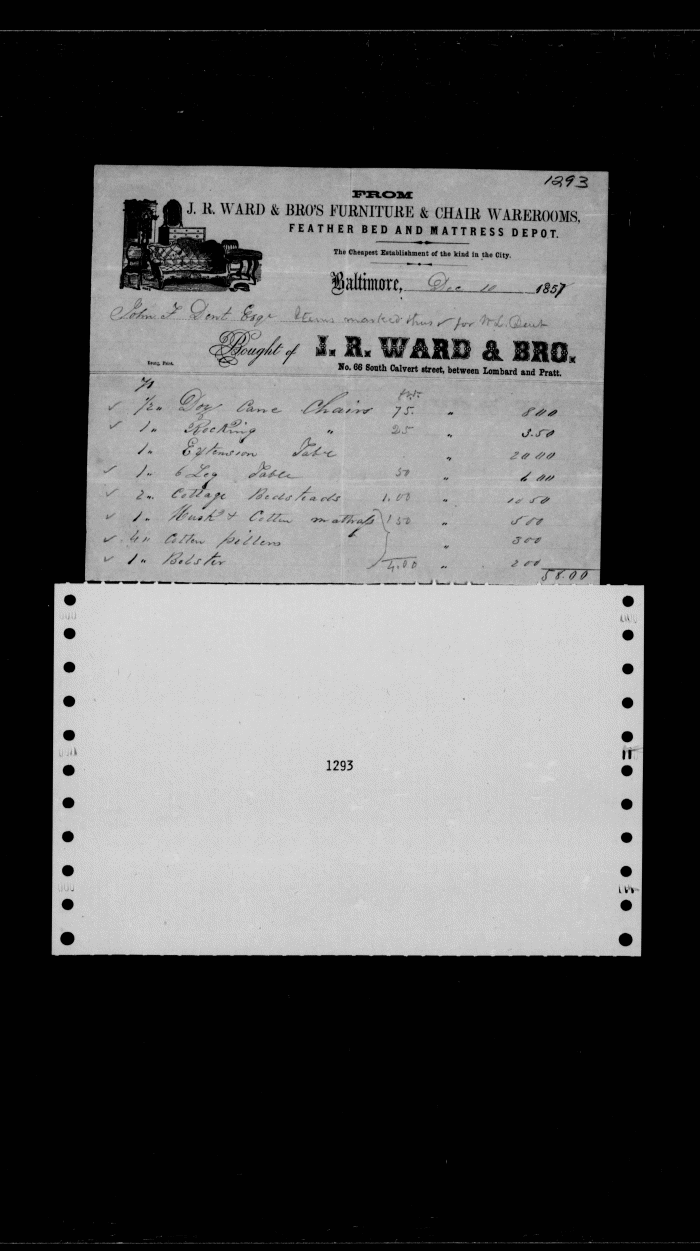 1293
FROM
J. R. WARD & BRO'S FURNITURE & CHAIR WAREROOMS,
FEATHER BED AND MATTRESS DEPOT.
The Cheapest Establishment of the kind in the City.
Baltimore, Dec 10 1857
John F Dent Esqr Items marked thus ✓ for W.L. Dent
Bought of J. R. WARD & BRO.
No. 66 South Calvert street, between Lombard and Pratt.
✓ 1/2 " Doz Cane Chairs 75. " 8 00
✓ 1 " Rocking " 25 " 3.50
1 " Extension Table " 20 00
✓ 1 " 6 Leg Table 50 " 6 00
✓ 2 " Cottage Bedsteads 1.00 " 10 50
✓ 1 " Husk & Cotton matrass } 1 50 " 5 00
✓ 4 " Cotton pillows " 3 00
✓ 1 " Bolster 4.00 " 2 00
58.00
1293